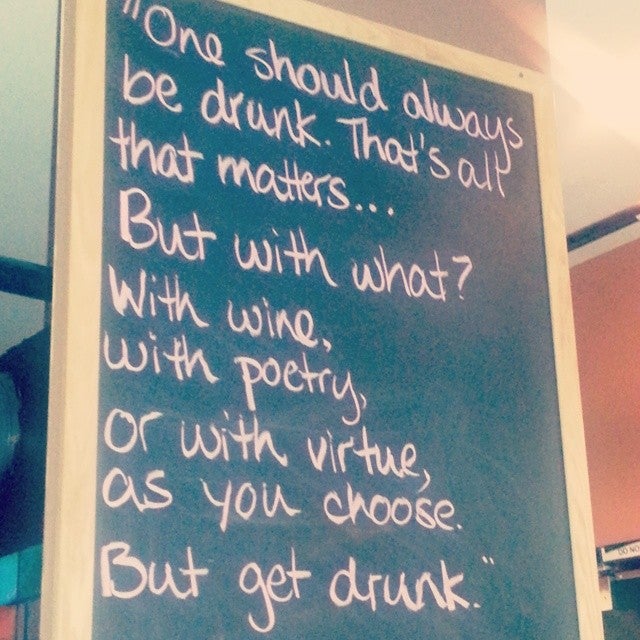 "One should always
be drunk. That's all
that matters...
But with what?
With wine,
with poetry,
or with virtue,
as you choose.
But get drunk."
DO NO